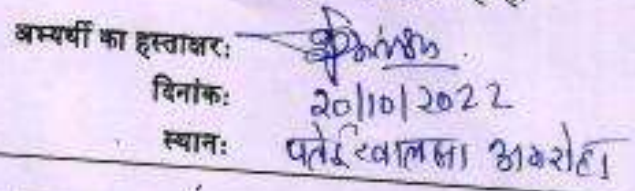 अभ्यर्थी का हस्ताक्षर:
दिनांक: 20/10/2022
स्थान: पतेई खालसा अमरोहा